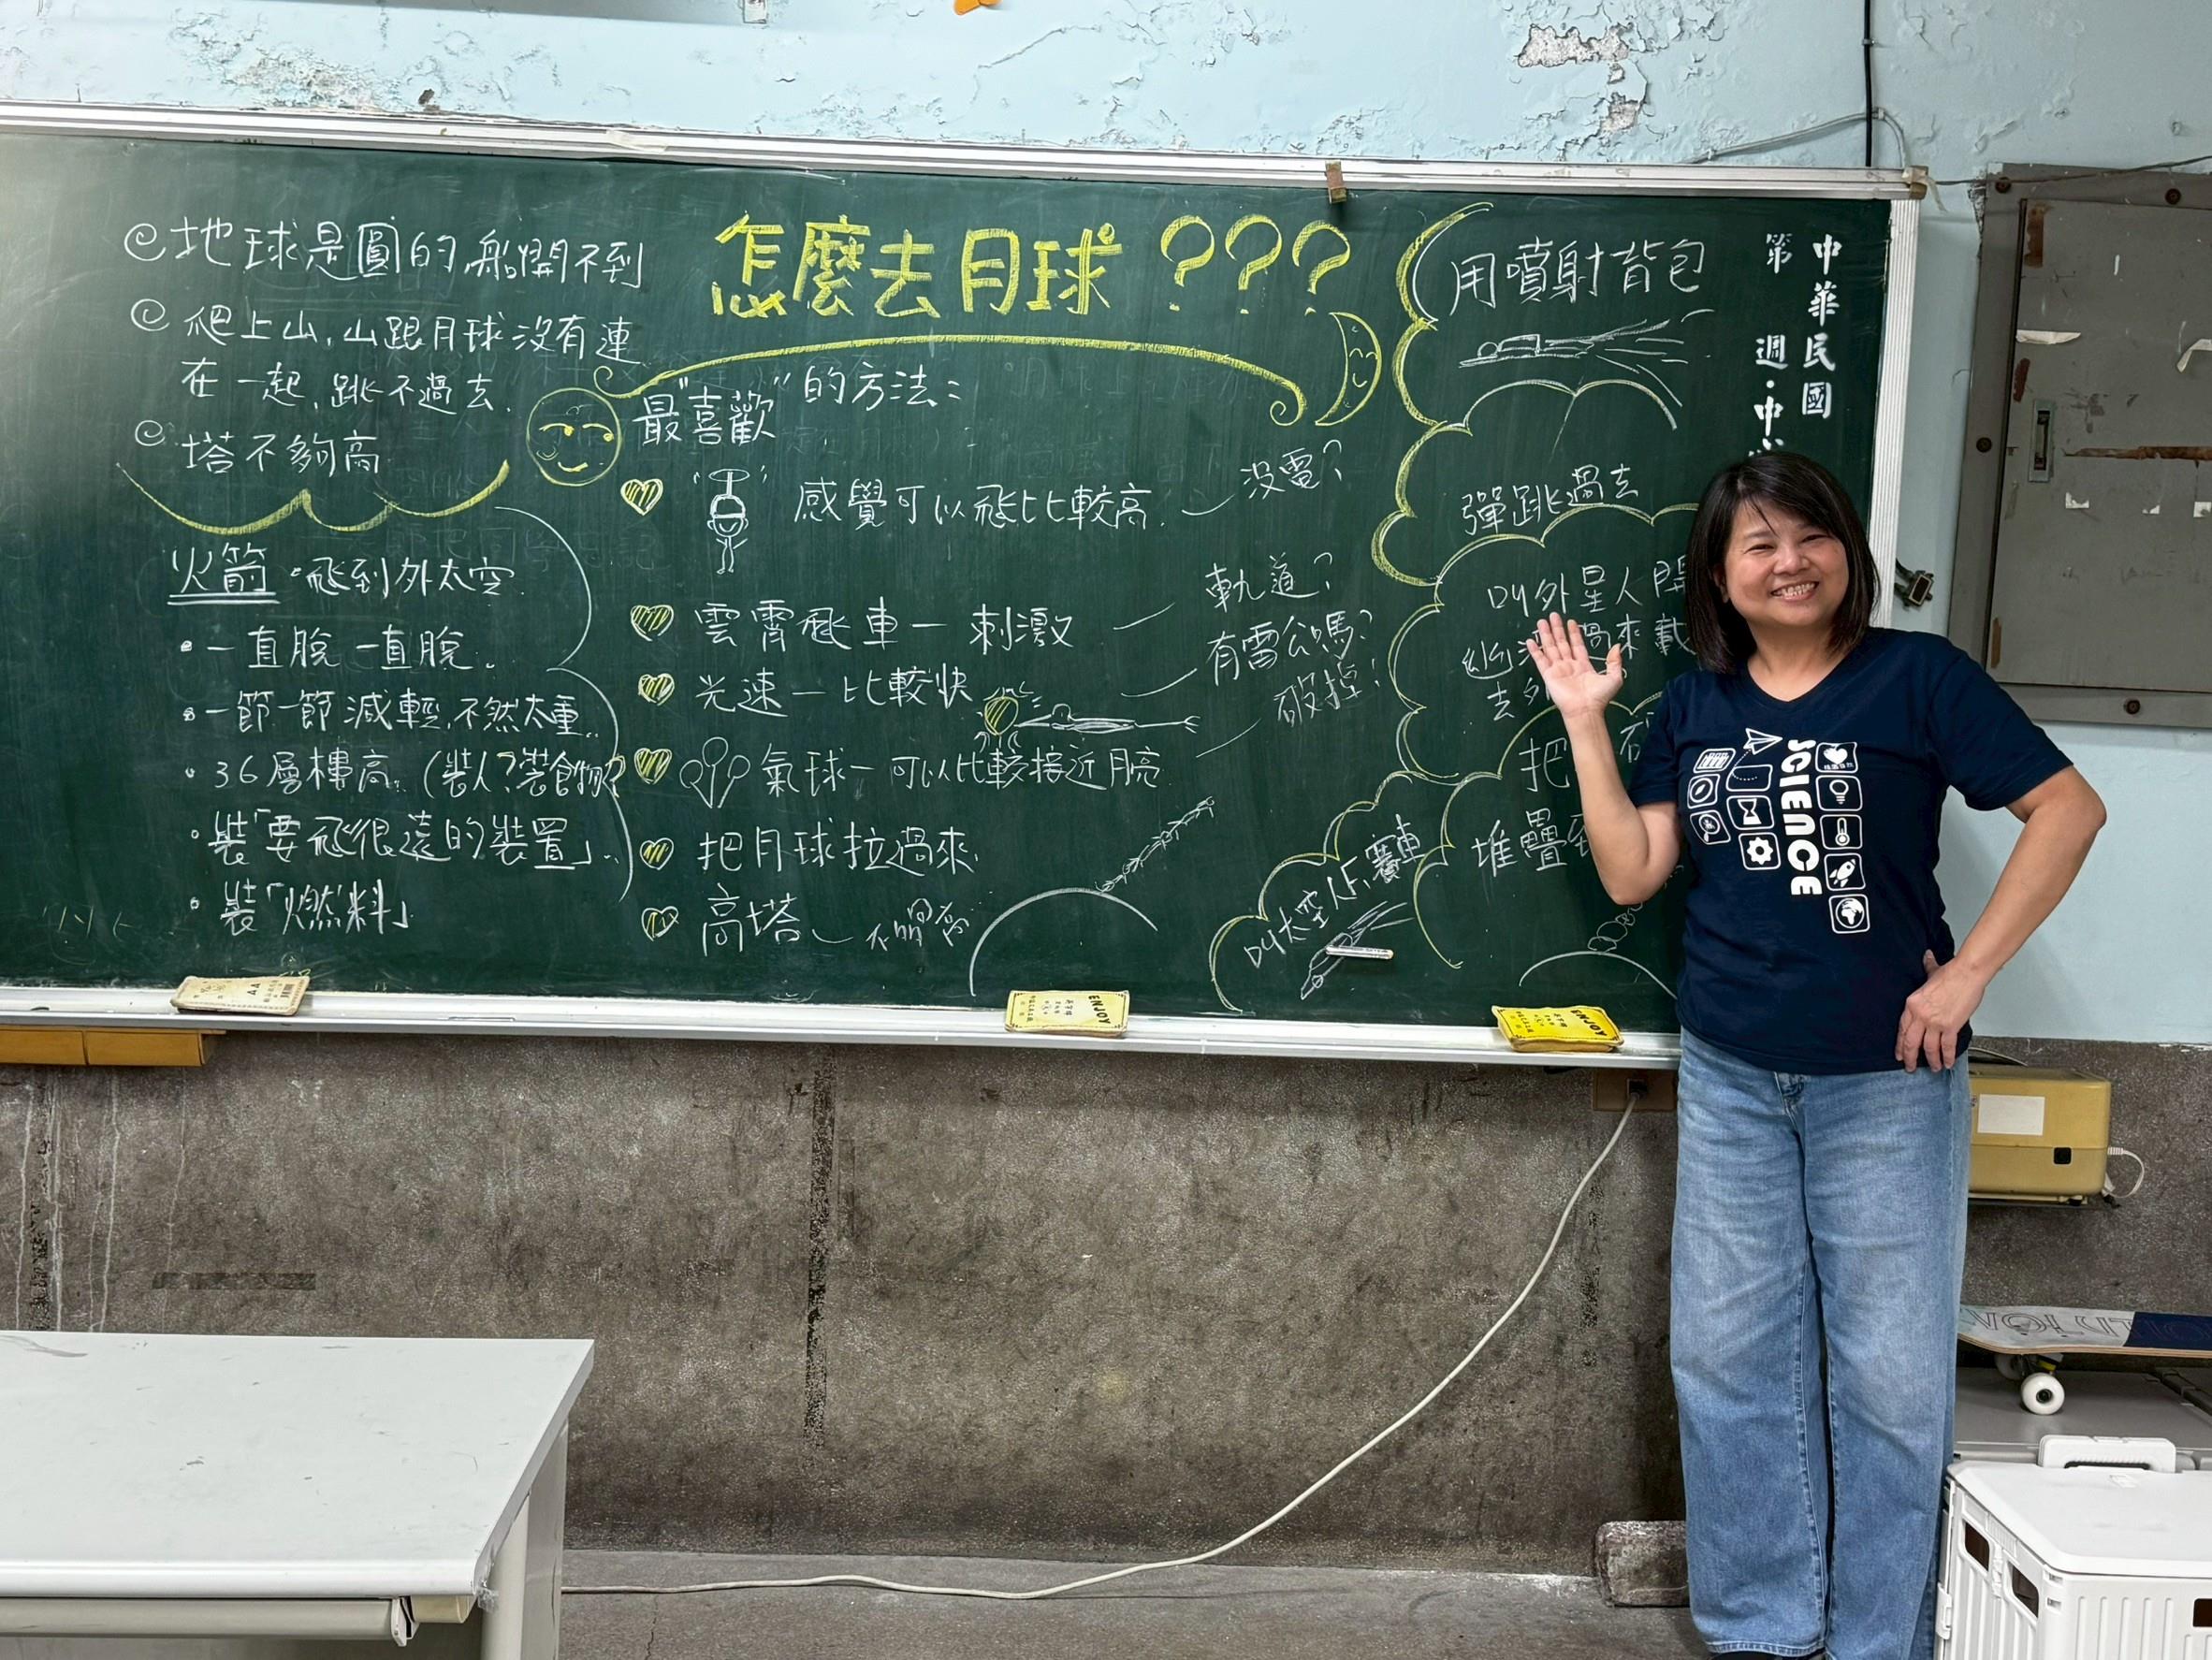 怎麼去月球???
地球是圓的船開不到
爬上山,山跟月球沒有連
在一起,跳不過去.
塔不夠高
火箭・飛到外太空
・一直脫一直脫.
・一節一節減輕,不然太重..
・36層樓高.(裝人?裝食物?
・裝「要飛很遠的裝置」..
・裝「燃料」
最"喜歡"的方法:
感覺可以飛比較高.
沒電?
雲霄飛車-刺激
軌道?
光速-比較快
有雷公嗎?
氣球-可以比較接近月亮
破掉!
把月球拉過來
高塔
用噴射背包
彈跳過去
叫外星人開
過來載
去外
把
堆疊
叫太空人F1賽車
中華民國
第 週・中
SCIENCE
ENJOY
ENJOY